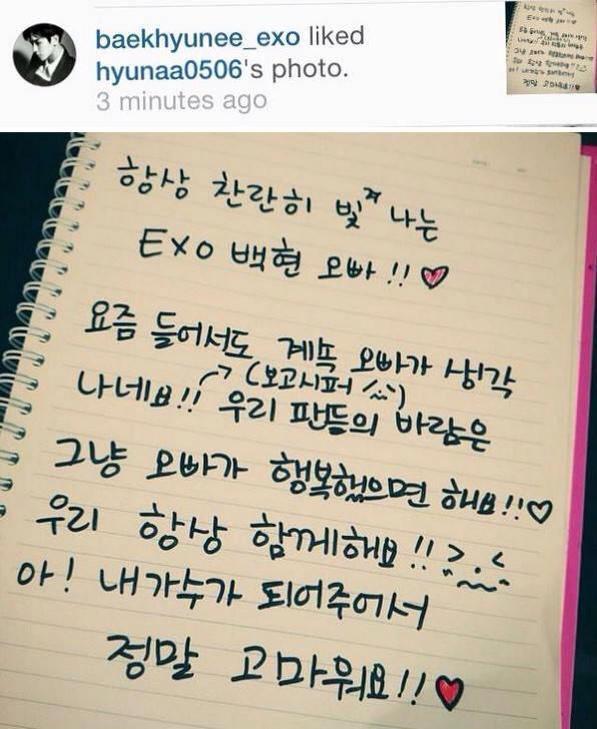 baekhyunee_exo liked
hyunaa0506's photo.
3 minutes ago
항상 찬란히 빛나는
EXO 백현 오빠!!♡
요즘 들어서도 계속 오빠가 생각
나네요!! (보고시퍼 ㅠㅠ)
우리 팬들의 바람은
그냥 오빠가 행복했으면 해요!!♡
우리 항상 함께해요!!
아! 내 가수가 되어주어서
정말 고마워요!!♥